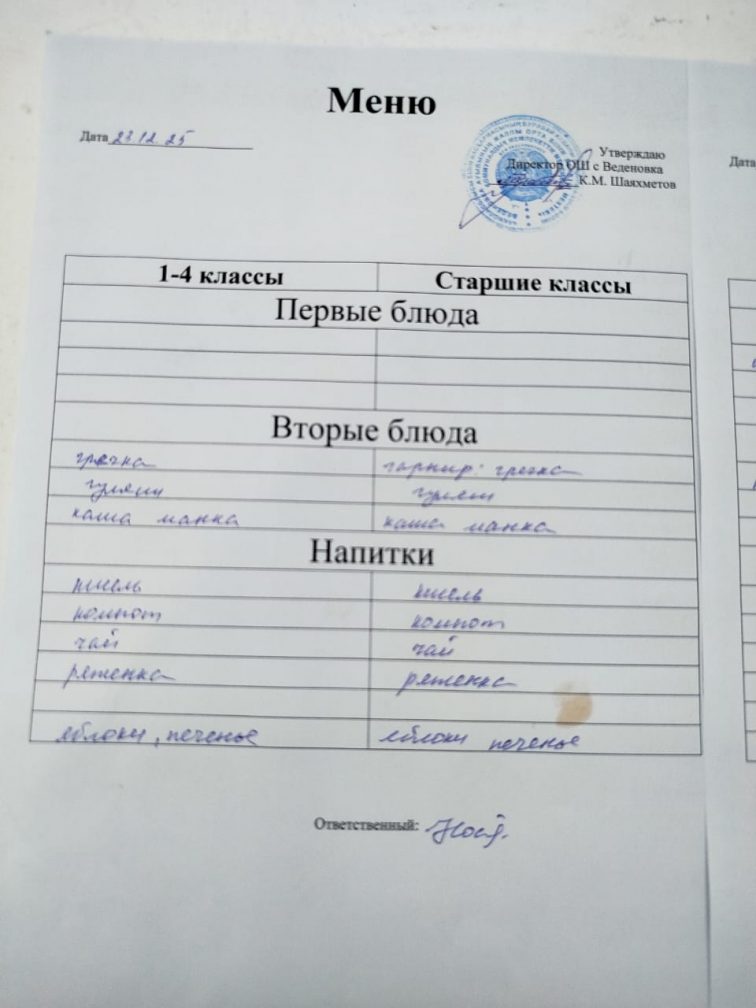 Меню
Дата 23.12.25
Утверждаю
Директор ОШ с Веденовка
К.М. Шаяхметов
Дата
1-4 классы Старшие классы
Первые блюда
Вторые блюда
гречка гарнир: гречка
гуляш гуляш
каша манка каша манка
Напитки
кисель кисель
компот компот
чай чай
ряженка ряженка
яблоки, печенье яблоки печенье
Ответственный: